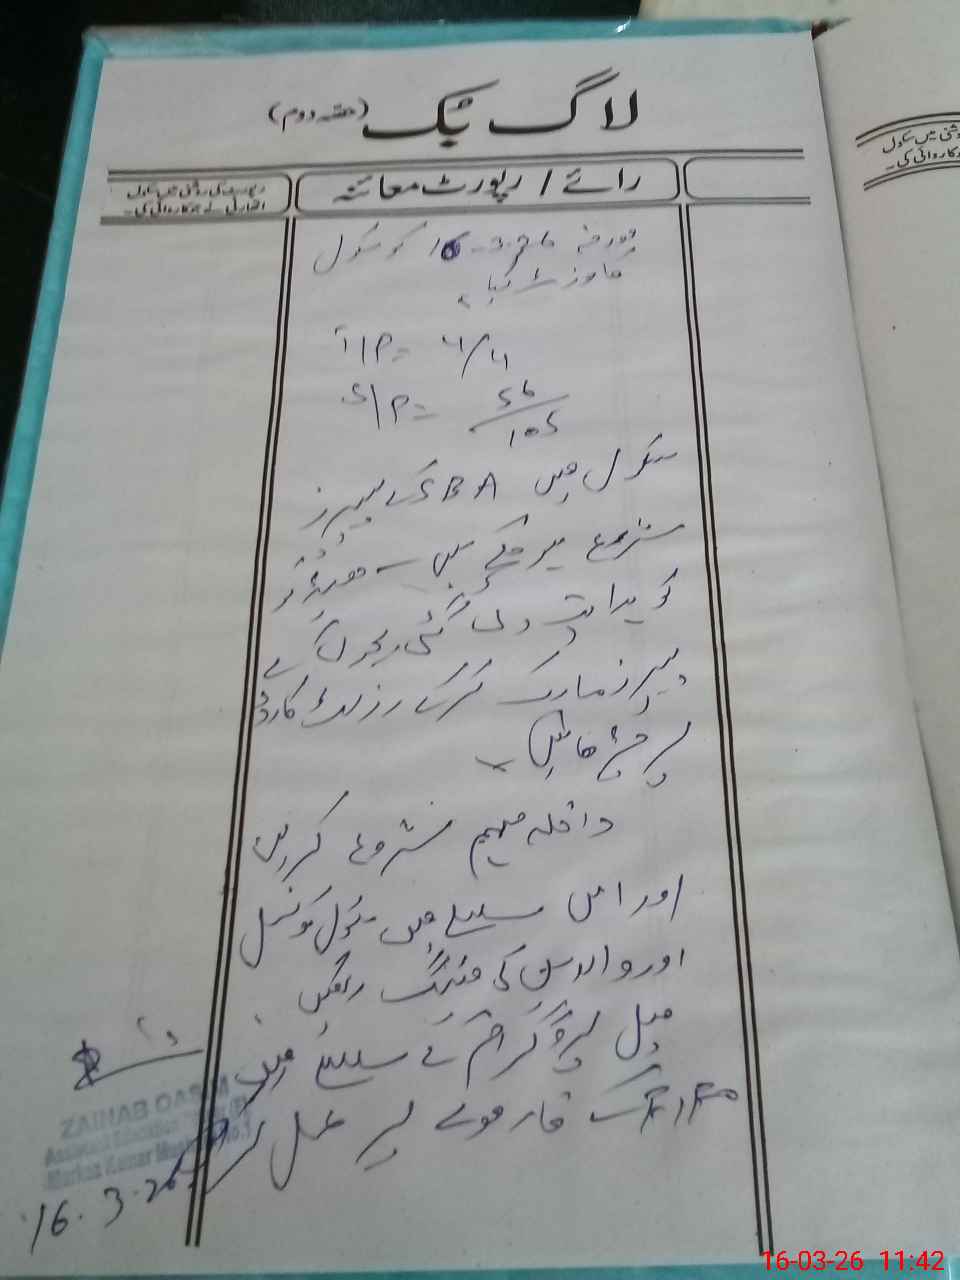 لاگ بک (حصہ دوم)
رائے / رپورٹ معائنہ
رپورٹ کی روشنی میں سکول
اتھارٹی نے جو کاروائی کی۔
مورخہ 16-3-26 کو سکول
کا وزٹ کیا۔
T/P = 4/4
S/P = 56/105
سکول میں SBA کے پیپرز
شروع ہو چکے ہیں۔ ٹیچرز
کو ہدایت دی گئی کہ بچوں کے
پیپرز مارک کر کے رزلٹ کارڈ
پر
داخلہ مہم شروع کریں
اور اس سلسلے میں سکول کونسل
اور والدین کی میٹنگ رکھیں
میل پروگرام کے سلسلے میں
FIFO کے فارمولے پر عمل کریں
ZAINAB QASIM
Assistant Education
Markaz
16.3.26
روشنی میں سکول
کاروائی کی۔
16-03-26 11:42